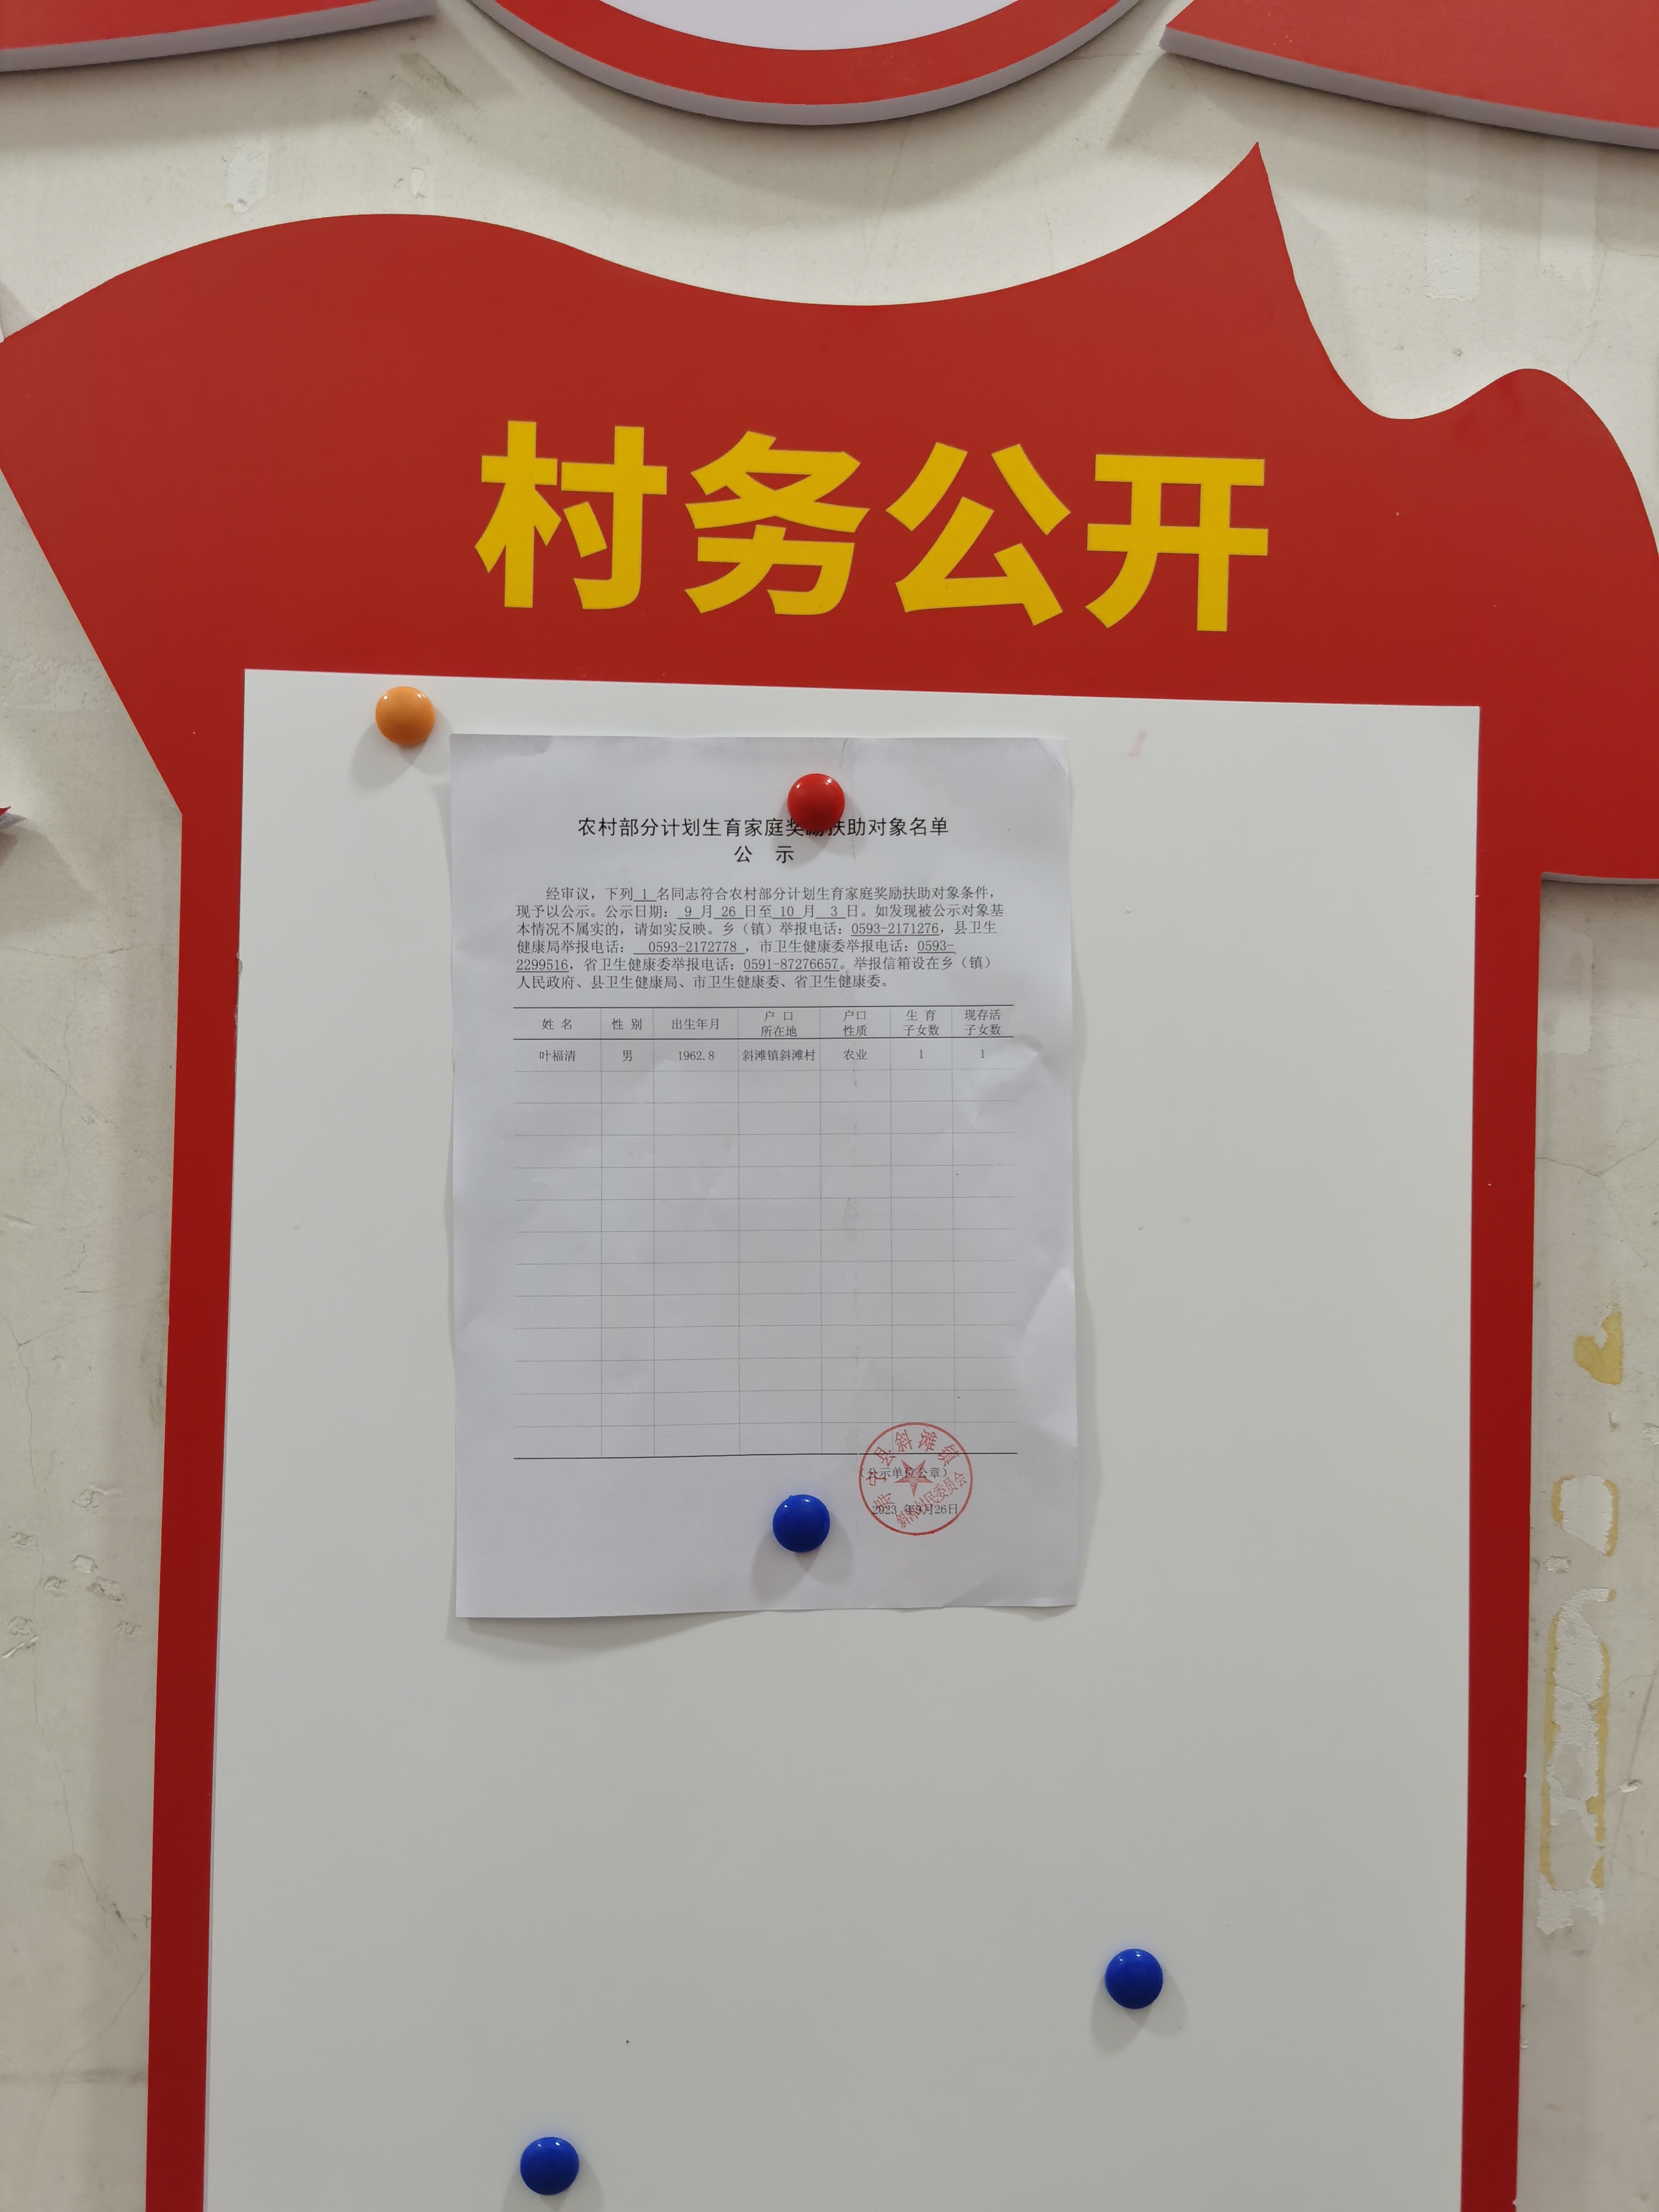 村务公开
农村部分计划生育家庭奖励扶助对象名单
公 示
经审议，下列 1 名同志符合农村部分计划生育家庭奖励扶助对象条件，
现予以公示。公示日期： 9 月 26 日至 10 月 3 日。如发现被公示对象基
本情况不属实的，请如实反映。乡（镇）举报电话：0593-2171276，县卫生
健康局举报电话： 0593-2172778 ，市卫生健康委举报电话：0593-
2299516，省卫生健康委举报电话：0591-87276657。举报信箱设在乡（镇）
人民政府、县卫生健康局、市卫生健康委、省卫生健康委。
姓 名 性 别 出生年月 户 口 所在地 户口 性质 生 育 子女数 现存活 子女数
叶福清 男 1962.8 斜滩镇斜滩村 农业 1 1
寿宁县斜滩镇
（公示单位公章）
斜滩村村民委员会
2023 年9月26日